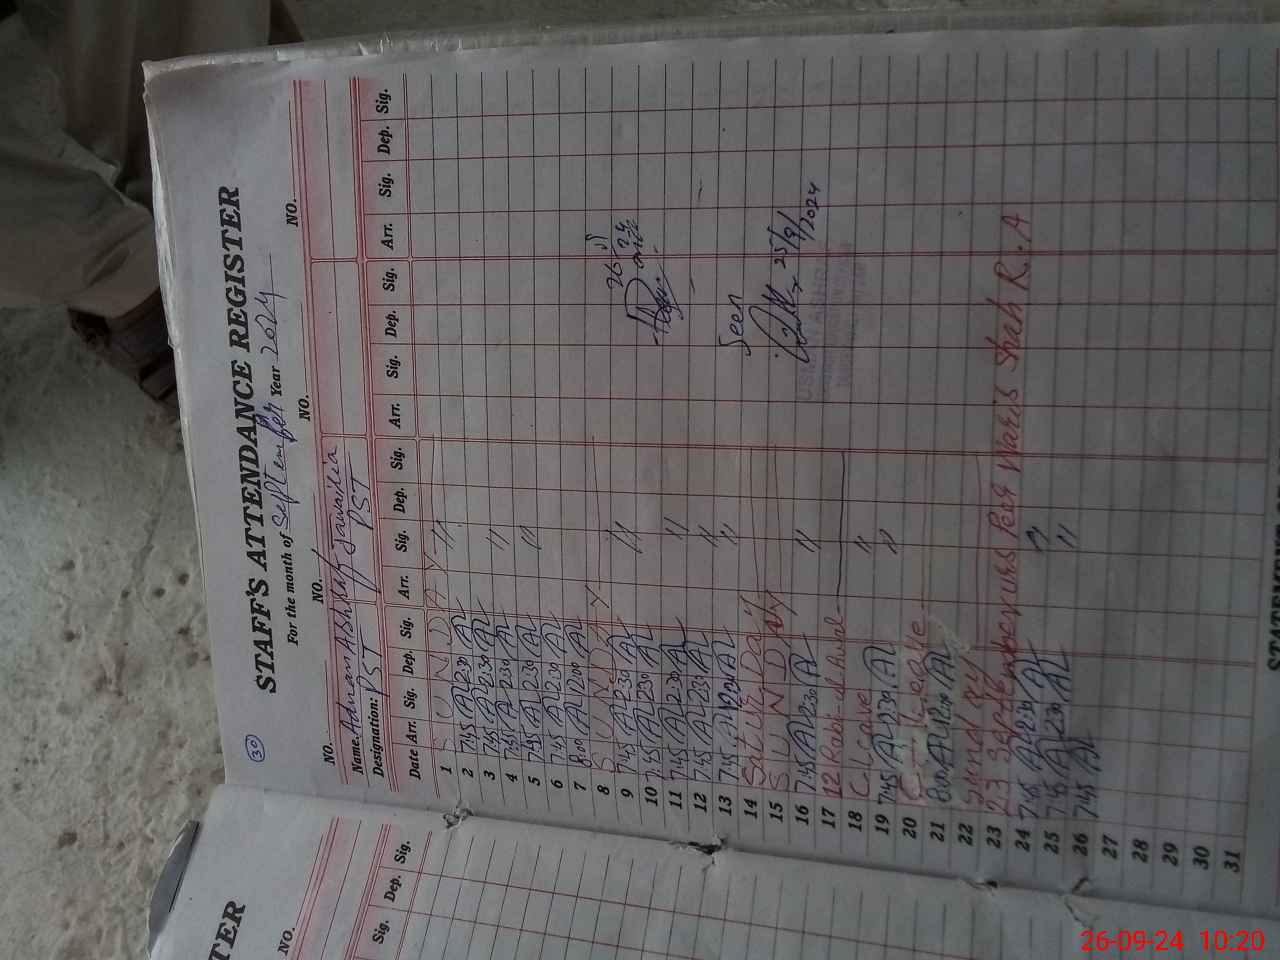 30
STAFF'S ATTENDANCE REGISTER
For the month of September Year 2024
NO. NO. NO. NO.
Name. Adnan AShraf Jawairia
Designation: PST PST
Date Arr. Sig. Dep. Sig. Arr. Sig. Dep. Sig. Arr. Sig. Dep. Sig. Arr. Sig. Dep. Sig.
1 S U N D A Y "
2 7:45 AL 2:30 AL
3 7:45 AL 2:30 AL "
4 7:45 AL 2:30 AL
5 7:45 AL 2:30 AL "
6 7:45 AL 2:30 AL
7 8:00 AL 12:00 AL
8 S U N D A Y
9 7:45 AL 2:30 AL "
10 7:45 AL 2:30 AL
11 7:45 AL 2:30 AL "
12 7:45 AL 2:30 AL "
13 7:45 AL 12:00 AL "
14 Satur Day
15 S U N D A Y
16 7:45 AL 2:30 AL "
17 12 Rabi-ul-Aval
18 C.L Leave "
19 7:45 AL 2:30 AL "
20 C.L Leave
21 8:00 AL 12:00 AL
22 Sunday
23 23 September urss Peer Waris Shah R.A
24 7:45 AL 2:30 AL
25 7:45 AL 2:30 AL "
26 7:45 AL "
27
28
29
30
31
26 9
24
Seen
25/9/2024
TER
NO.
Sig. Dep. Sig.
26-09-24 10:20